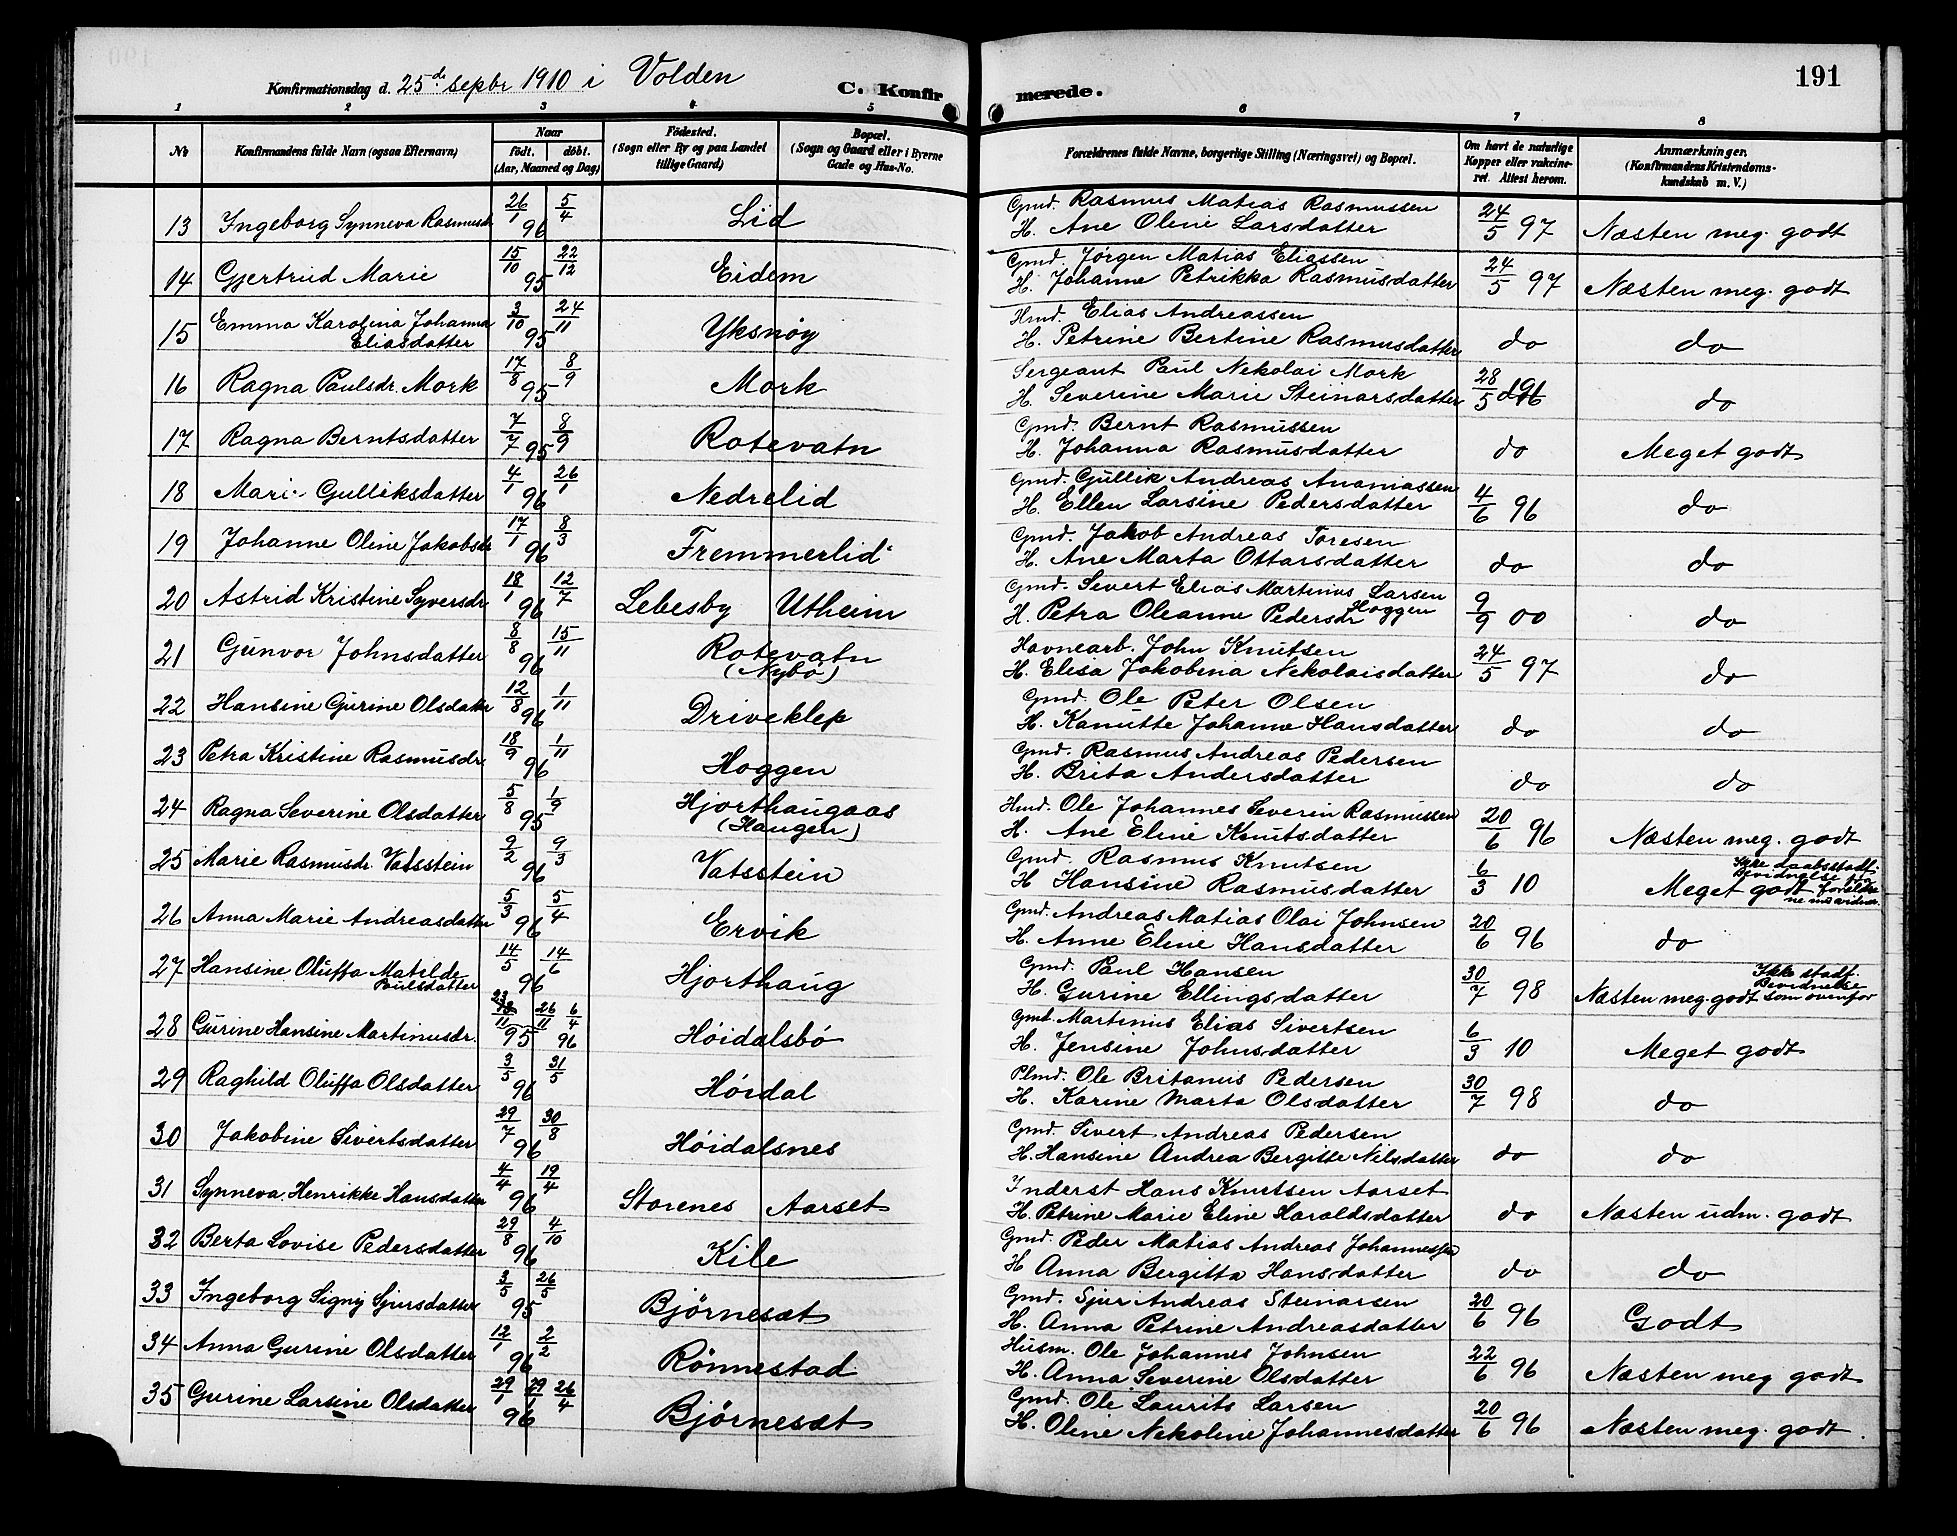 191
Konfirmationsdag d. 25de sepbr 1910 i Volden
C. Konfirmerede.
1 2 3 4 5 6 7 8
No
Konfirmandens fulde Navn (ogsaa Efternavn)
Naar
födt. döbt.
(Aar, Maaned og Dag)
Födested.
(Sogn eller By og paa Landet
tillige Gaard)
Bopæl.
(Sogn og Gaard eller i Byerne
Gade og Hus-No.
Forældrenes fulde Navne, borgerlige Stilling (Næringsvei) og Bopæl.
Om havt de naturlige
Kopper eller vakcine-
ret. Attest herom.
Anmærkninger.
(Konfirmandens Kristendoms-
kundskab m. V.)
13 Ingeborg Synneva Rasmusdr 26/1 96 5/4 Lid Gmd. Rasmus Matias Rasmussen
H. Ane Oline Larsdatter 24/5 97 Næsten meg. godt
14 Gjertrud Marie 15/10 95 22/12 Eidem Gmd. Jørgen Matias Eliassen
H. Johanne Petrikka Rasmusdatter 24/5 97 Næsten meg. godt
15 Emma Karolina Johanna
Eliasdatter 3/10 95 24/11 Yksnöy Hmd. Elias Andreassen
H. Petrine Bertine Rasmusdatter do do
16 Ragna Paulsdr. Mork 17/8 95 8/9 Mork Sergeant Paul Nekolai Mork
H. Severine Marie Steinarsdatter 28/5 96 do
17 Ragna Berntsdatter 7/7 95 8/9 Rotevatn Gmd. Bernt Rasmussen
H. Johanna Rasmusdatter do Meget godt
18 Mari Gulliksdatter 4/1 96 26/1 Nedrelid Gmd. Gullik Andreas Ananiassen
H. Ellen Larsine Pedersdatter 4/6 96 do
19 Johanne Oline Jakobsdr 17/1 96 8/3 Fremmerlid Gmd. Jakob Andreas Toresen
H. Ane Marta Ottarsdatter do do
20 Astrid Kristine Syversdr. 18/1 96 12/7 Lebesby Utheim Gmd. Severt Elias Martinius Larsen
H. Petra Oleanne Pedersdr Hoggen 9/9 00 do
21 Gunvor Johnsdatter 8/8 96 15/11 Rotevatn
(Nybö) Havnearb. John Knutsen
H. Elisa Jakobina Nekolaisdatter 24/5 97 do
22 Hansine Gurine Olsdatter 12/8 96 1/11 Driveklep Gmd. Ole Peter Olsen
H. Kanutte Johanna Hansdatter do do
23 Petra Kristine Rasmusdr. 18/9 96 1/11 Hoggen Gmd. Rasmus Andreas Pedersen
H. Brita Andersdatter do do
24 Ragna Severine Olsdatter 5/8 95 1/9 Hjorthaugaas
(Haugen) Hmd. Ole Johannes Severin Rasmussen
H. Ane Eline Knutsdatter 20/6 96 Næsten meg. godt
25 Marie Rasmusdr. Vatsstein 9/2 96 9/3 Vatsstein Gmd. Rasmus Knutsen
H Hansine Rasmusdatter 6/3 10 Meget godt
26 Anna Marie Andreasdatter 5/3 96 5/4 Ervik Gmd. Andreas Matias Olai Johnsen
H. Anne Eline Hansdatter 20/6 96 do
27 Hansine Oluffa Matilde
Pulsdatter 14/5 96 14/6 Hjorthaug Gmd. Paul Hansen
H. Gurine Ellingsdatter 30/7 98 Næsten meg. godt Ikke stadf.
Bevidnelse
som ovenfor
28 Gurine Hansine Martinusdr. 23/11 95 26/11 6/4 96 Höidalsbö Gmd. Martinius Elias Sivertsen
H. Jensine Johnsdatter 6/3 10 Meget godt
29 Raghild Oluffa Olsdatter 3/5 96 31/5 Höidal Plmd. Ole Britanus Pedersen
H. Karine Marta Olsdatter 30/7 98 do
30 Jakobine Sivertsdatter 29/7 96 30/8 Höidalsnes Gmd. Sivert Andreas Pedersen
H. Hansine Andrea Bergitte Nilsdatter do do
31 Synneva Henrikke Hansdatter 4/4 96 19/4 Storenes Aarset Inderst Hans Knutsen Aarset
H. Petrine Marie Eline Haraldsdatter do Næsten udm. godt
32 Berta Lovise Pedersdatter 29/8 96 4/10 Kile Gmd. Peder Matias Andreas Johannessen
H Anna Bergitta Hansdatter do do
33 Ingeborg Signy Sjursdatter 3/5 95 26/5 Björneset Gmd. Sjur Andreas Steinarsen
H. Anna Petrine Andreasdatter 20/6 96 Godt
34 Anna Gurine Olsdatter 12/1 96 2/2 Rönnestad Husm. Ole Johannes Johnsen
H. Anna Severine Olsdatter 22/6 96 Næsten meg godt
35 Gurine Larsine Olsdatter 29/1 96 29/1 26/4 Björneset Gmd. Ole Laurits Larsen
H. Oline Nekoline Johannesdatter 20/6 96 Næsten meg. godt